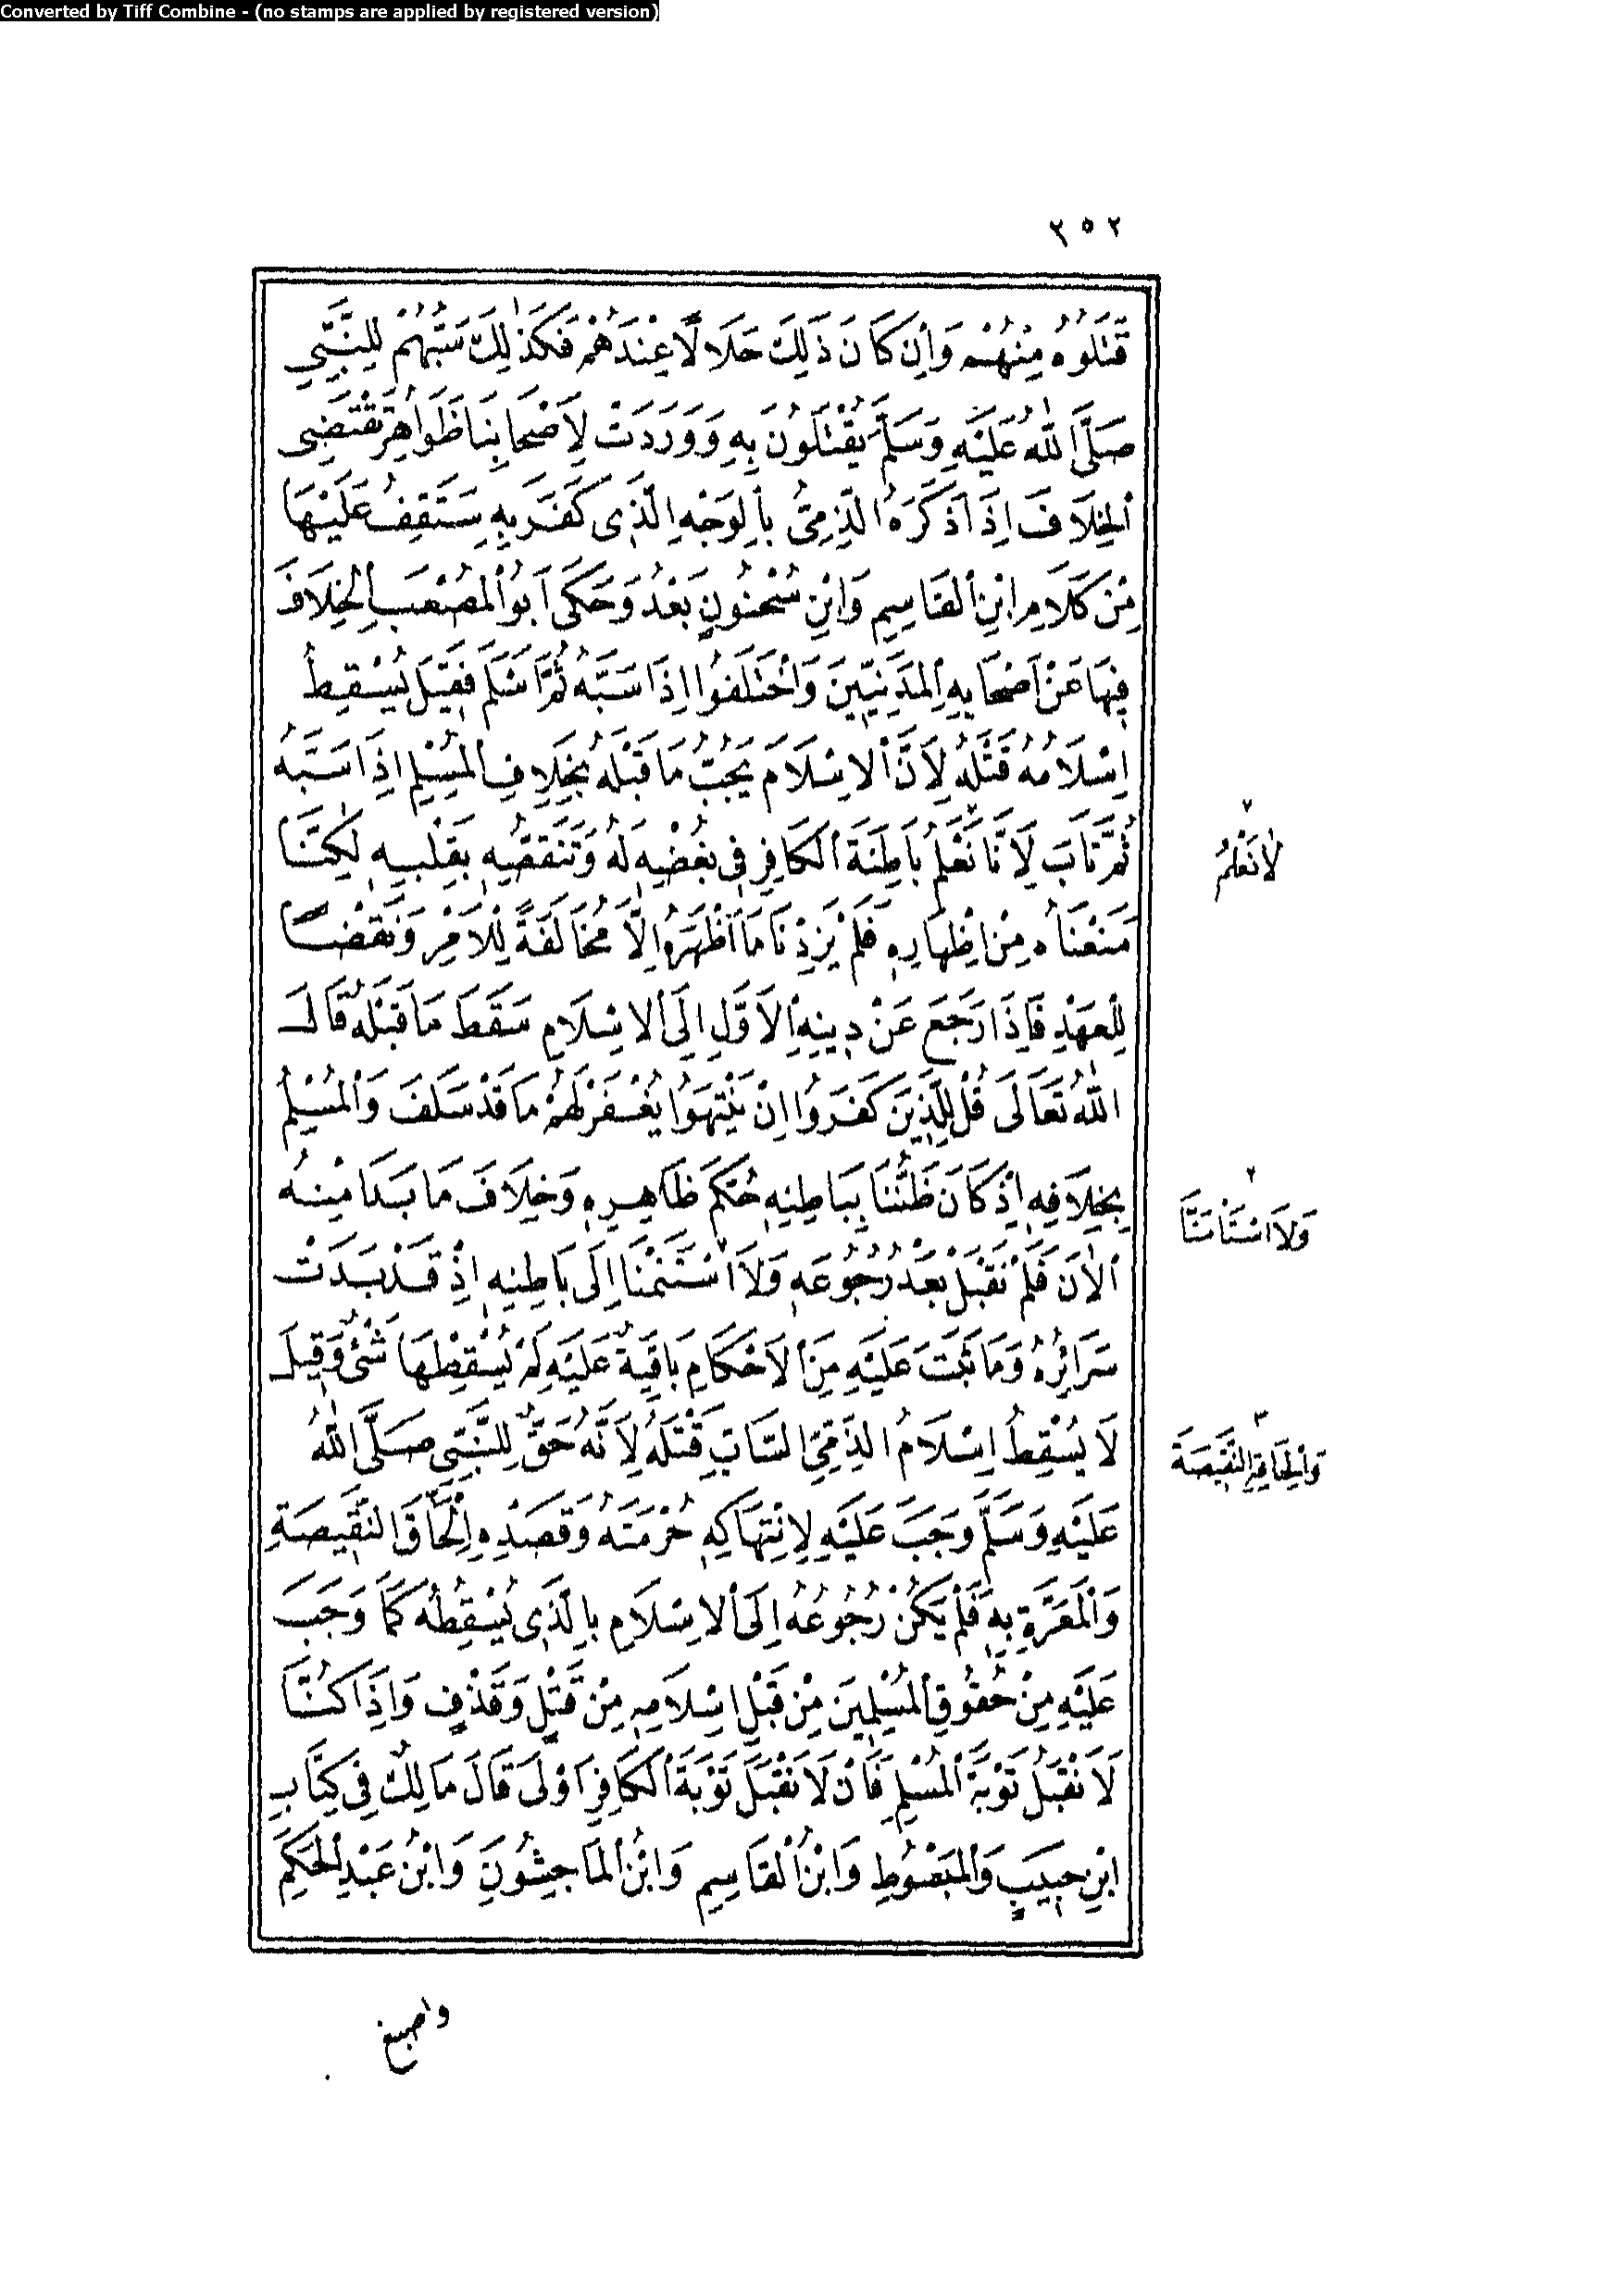 Converted by Tiff Combine - (no stamps are applied by registered version)
٢٥٢
قَتَلُوهُ مِنْهُمْ وَاِنْ كَانَ ذٰلِكَ حَلَالًا عِنْدَهُمْ فَكَذٰلِكَ سَبُّهُمْ لِلنَّبِيِّ
صَلَّى اللّٰهُ عَلَيْهِ وَسَلَّمَ يُقْتَلُونَ بِهِ وَوَرَدَتْ لِاَصْحَابِنَا ظَوَاهِرُ تَقْتَضِى
الْخِلَافَ اِذَا ذَكَرَهُ الذِّمِّىُّ بِالْوَجْهِ الَّذِى كَفَرَ بِهِ سَتَقِفُ عَلَيْهَا
مِنْ كَلَامِ ابْنِ الْقَاسِمِ وَابْنِ سُحْنُونٍ بَعْدُ وَحَكَى اَبُو الْمُصْعَبِ الْخِلَافَ
فِيهَا عَنْ اَصْحَابِهِ الْمَدَنِيِّينَ وَاخْتَلَفُوا اِذَا سَبَّهُ ثُمَّ اَسْلَمَ فَقِيلَ يُسْقِطُ
اِسْلَامُهُ قَتْلَهُ لِاَنَّ الْاِسْلَامَ يَجُبُّ مَا قَبْلَهُ بِخِلَافِ الْمُسْلِمِ اِذَا سَبَّهُ
ثُمَّ تَابَ لِاَنَّا نَعْلَمُ بَاطِنَةَ الْكَافِرِ فِى بُغْضِهِ لَهُ وَتَنَقُّصِهِ بِقَلْبِهِ لٰكِنَّا
مَنَعْنَاهُ مِنْ اِظْهَارِهِ فَلَمْ يَزِدْنَا مَا اَظْهَرَهُ اِلَّا مُخَالَفَةً لِلْاَمْرِ وَنَقْضًا
لِلْعَهْدِ فَاِذَا رَجَعَ عَنْ دِينِهِ الْاَوَّلِ اِلَى الْاِسْلَامِ سَقَطَ مَا قَبْلَهُ قَالَ
اللّٰهُ تَعَالَى قُلْ لِلَّذِينَ كَفَرُوا اِنْ يَنْتَهُوا يُغْفَرْ لَهُمْ مَا قَدْ سَلَفَ وَالْمُسْلِمُ
بِخِلَافِهِ اِذْ كَانَ ظَنُّنَا بِبَاطِنِهِ حُكْمَ ظَاهِرِهِ وَخِلَافَ مَا بَدَا مِنْهُ
الْاٰنَ فَلَمْ نَقْبَلْ بَعْدُ رُجُوعَهُ وَلَا اسْتَنَمْنَا اِلَى بَاطِنِهِ اِذْ قَدْ بَدَتْ
سَرَائِرُهُ وَمَا ثَبَتَ عَلَيْهِ مِنَ الْاَحْكَامِ بَاقِيَةٌ عَلَيْهِ لَمْ يُسْقِطْهَا شَىْءٌ وَقِيلَ
لَا يُسْقِطُ اِسْلَامُ الذِّمِّىِّ السَّابِّ قَتْلَهُ لِاَنَّهُ حَقٌّ لِلنَّبِىِّ صَلَّى اللّٰهُ
عَلَيْهِ وَسَلَّمَ وَجَبَ عَلَيْهِ لِانْتِهَاكِهِ حُرْمَتَهُ وَقَصْدِهِ اِلْحَاقَ النَّقِيصَةِ
وَالْمَعَرَّةِ بِهِ فَلَمْ يَكُنْ رُجُوعُهُ اِلَى الْاِسْلَامِ بِالَّذِى يُسْقِطُهُ كَمَا وَجَبَ
عَلَيْهِ مِنْ حُقُوقِ الْمُسْلِمِينَ مِنْ قَبْلِ اِسْلَامِهِ مِنْ قَتْلٍ وَقَذْفٍ وَاِذَا كُنَّا
لَا نَقْبَلُ تَوْبَةَ الْمُسْلِمِ فَاَنْ لَا نَقْبَلَ تَوْبَةَ الْكَافِرِ اَوْلَى قَالَ مَالِكٌ فِى كِتَابِ
ابْنِ حَبِيبٍ وَالْمَبْسُوطِ وَابْنُ الْقَاسِمِ وَابْنُ الْمَاجِشُونِ وَابْنُ عَبْدِ الْحَكَمِ
٧
لَا نَعْلَمُ
٢
وَلَا اسْتَأْمَنَّا
٣
وَاِلْحَاقِهِ النَّقِيصَةَ
واصبغ